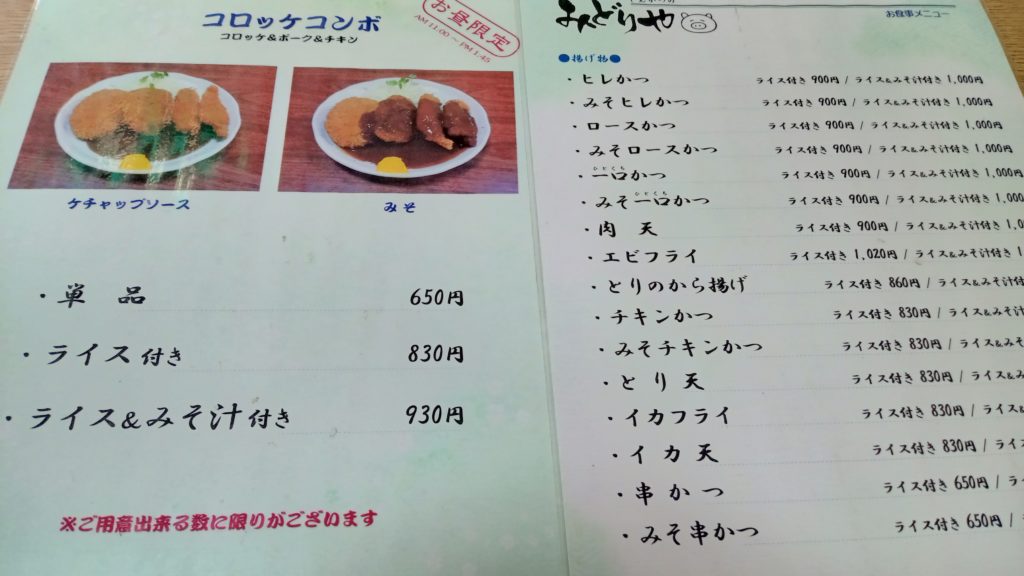 コロッケコンボ
コロッケ&ポーク&チキン
お昼限定
AM 11:00 ～ PM 1:45
ケチャップソース
みそ
・単品 650円
・ライス付き 830円
・ライス&みそ汁付き 930円
※ご用意出来る数に限りがございます
みどりや
お食事メニュー
●揚げ物●
・ヒレかつ ライス付き 900円 / ライス&みそ汁付き 1,000円
・みそヒレかつ ライス付き 900円 / ライス&みそ汁付き 1,000円
・ロースかつ ライス付き 900円 / ライス&みそ汁付き 1,000円
・みそロースかつ ライス付き 900円 / ライス&みそ汁付き 1,000円
ひとくち
・一口かつ ライス付き 900円 / ライス&みそ汁付き 1,000円
ひとくち
・みそ一口かつ ライス付き 900円 / ライス&みそ汁付き 1,000
・肉天 ライス付き 900円 / ライス&みそ汁付き 1,0
・エビフライ ライス付き 1,020円 / ライス&みそ汁付き 1
・とりのから揚げ ライス付き 860円 / ライス&みそ汁付
・チキンかつ ライス付き 830円 / ライス&みそ汁
・みそチキンかつ ライス付き 830円 / ライス&みそ
・とり天 ライス付き 830円 / ライス&み
・イカフライ ライス付き 830円 / ライス&
・イカ天 ライス付き 830円 / ライ
・串かつ ライス付き 650円 / ラ
・みそ串かつ ライス付き 650円 /